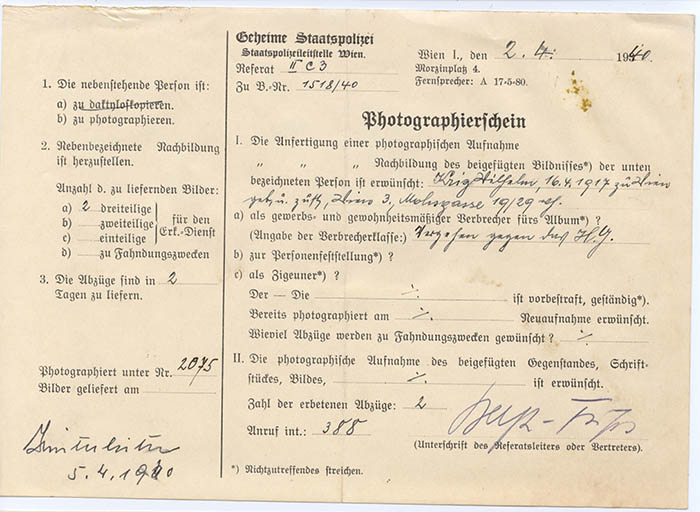 1. Die nebenstehende Person ist:
a) zu daktyloskopieren.
b) zu photographieren.
2. Nebenbezeichnete Nachbildung
ist herzustellen.
Anzahl d. zu liefernden Bilder:
a) 2 dreiteilige
b) zweiteilige
c) einteilige
für den
Erk.-Dienst
d) zu Fahndungszwecken
3. Die Abzüge sind in 2
Tagen zu liefern.
Photographiert unter Nr. 2075
Bilder geliefert am
5.4.1940
Geheime Staatspolizei
Staatspolizeileitstelle Wien.
Referat II C 3
Zu B.-Nr. 1518/40
Wien I., den 2. 4. 1940.
Morzinplatz 4.
Fernsprecher: A 17-5-80.
Photographierschein
I. Die Anfertigung einer photographischen Aufnahme
„ „ „ Nachbildung des beigefügten Bildnisses*) der unten
bezeichneten Person ist erwünscht: Wilhelm, 16.4.1917 zu Wien
geb. u. zust., Wien 3, 19/29
a) als gewerbs- und gewohnheitsmäßiger Verbrecher fürs Album*) ?
(Angabe der Verbrecherklasse:) Vergehen gegen das H.G.
b) zur Personenfeststellung*) ?
c) als Zigeuner*) ?
Der — Die ./. ist vorbestraft, geständig*).
Bereits photographiert am ./. Neuaufnahme erwünscht.
Wieviel Abzüge werden zu Fahndungszwecken gewünscht ? ./.
II. Die photographische Aufnahme des beigefügten Gegenstandes, Schrift-
stückes, Bildes, ./. ist erwünscht.
Zahl der erbetenen Abzüge: 2
Anruf int.: 388
(Unterschrift des Referatsleiters oder Vertreters).
*) Nichtzutreffendes streichen.